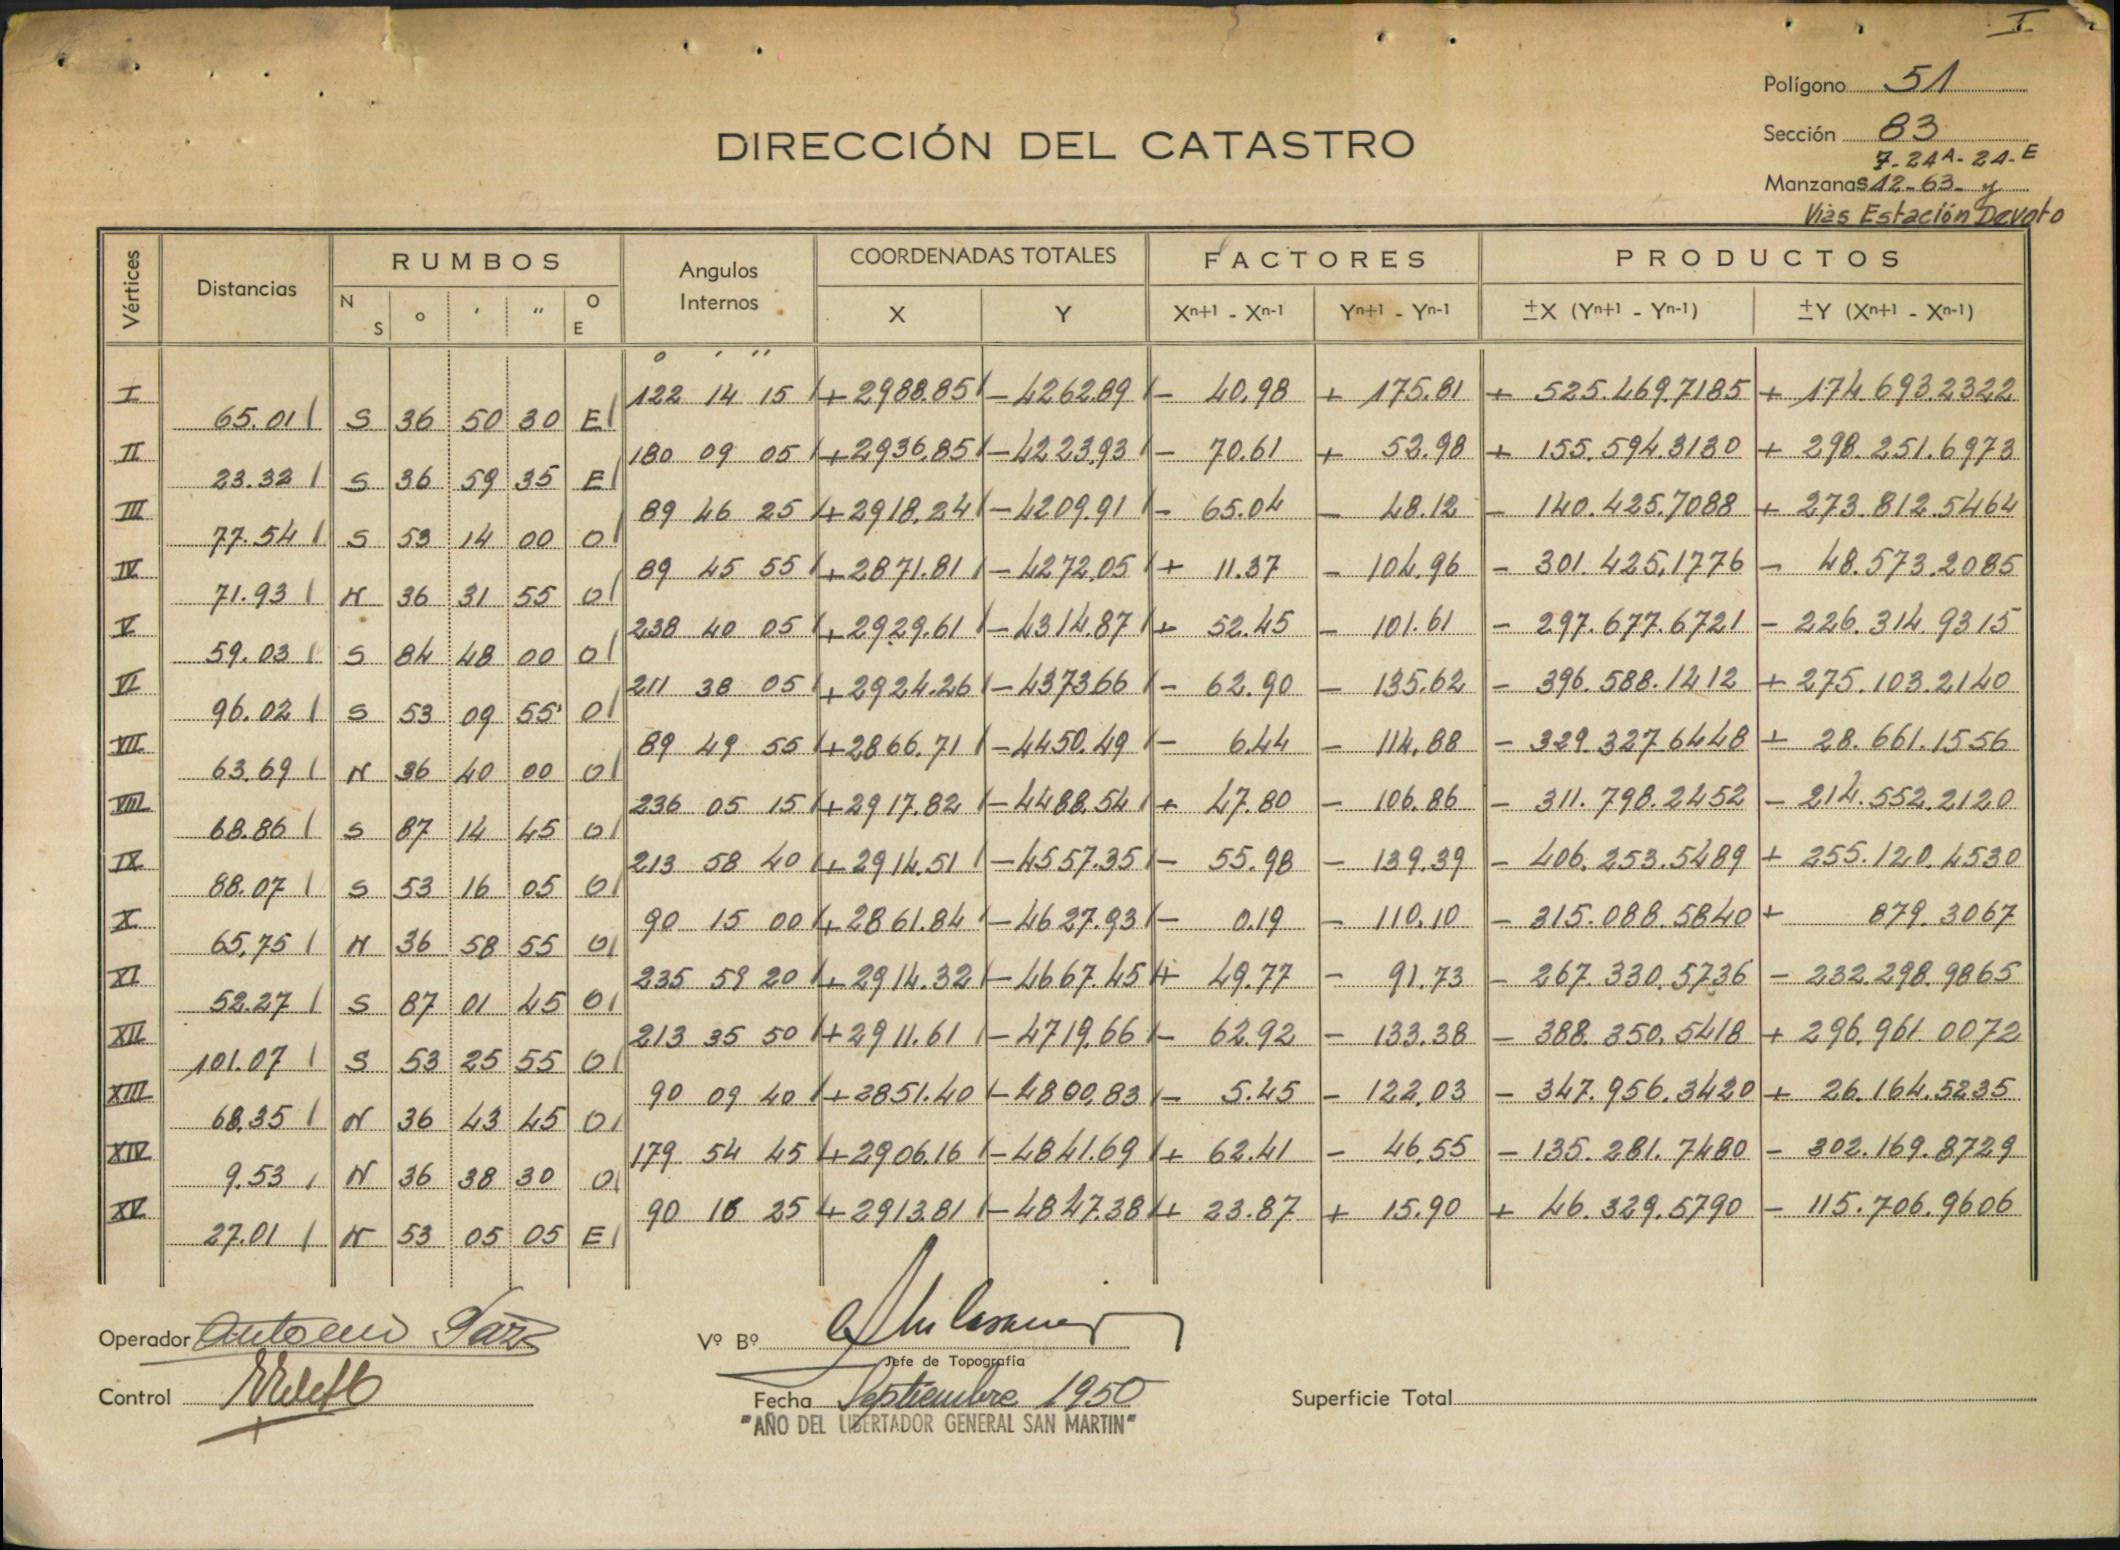 I
Polígono 51
DIRECCIÓN DEL CATASTRO
Sección 83
7-24A-24-E
Manzanas 12-63- y
Vías Estación Devoto
Vértices Distancias RUMBOS Angulos Internos COORDENADAS TOTALES FACTORES PRODUCTOS
N S ° ' " O E X Y Xn+1 - Xn-1 Yn+1 - Yn-1 ±X (Yn+1 - Yn-1) ±Y (Xn+1 - Xn-1)
° ' "
I 122 14 15 +2988.85 -4262.89 - 40.98 + 175.81 + 525.469.7185 + 174.693.2322
65.01 S 36 50 30 E
II 180 09 05 +2936.85 -4223.93 - 70.61 + 52.98 + 155.594.3130 + 298.251.6973
23.32 S 36 59 35 E
III 89 46 25 +2918.24 -4209.91 - 65.04 - 48.12 - 140.425.7088 + 273.812.5464
77.54 S 53 14 00 O
IV 89 45 55 +2871.81 -4272.05 + 11.37 - 104.96 - 301.425.1776 - 48.573.2085
71.93 N 36 31 55 O
V 238 40 05 +2929.61 -4314.87 + 52.45 - 101.61 - 297.677.6721 - 226.314.9315
59.03 S 84 48 00 O
VI 211 38 05 +2924.26 -4373.66 - 62.90 - 135.62 - 396.588.1412 + 275.103.2140
96.02 S 53 09 55 O
VII 89 49 55 +2866.71 -4450.49 - 6.44 - 114.88 - 329.327.6448 + 28.661.1556
63.69 N 36 40 00 O
VIII 236 05 15 +2917.82 -4488.54 + 47.80 - 106.86 - 311.798.2452 - 214.552.2120
68.86 S 87 14 45 O
IX 213 58 40 +2914.51 -4557.35 - 55.98 - 139.39 - 406.253.5489 + 255.120.4530
88.07 S 53 16 05 O
X 90 15 00 +2861.84 -4627.93 - 0.19 - 110.10 - 315.088.5840 + 879.3067
65.75 N 36 58 55 O
XI 235 59 20 +2914.32 -4667.45 + 49.77 - 91.73 - 267.330.5736 - 232.298.9865
52.27 S 87 01 45 O
XII 213 35 50 +2911.61 -4719.66 - 62.92 - 133.38 - 388.350.5418 + 296.961.0072
101.07 S 53 25 55 O
XIII 90 09 40 +2851.40 -4800.83 - 5.45 - 122.03 - 347.956.3420 + 26.164.5235
68.35 N 36 43 45 O
XIV 179 54 45 +2906.16 -4841.69 + 62.41 - 46.55 - 135.281.7480 - 302.169.8729
9.53 N 36 38 30 O
XV 90 16 25 +2913.81 -4847.38 + 23.87 + 15.90 + 46.329.5790 - 115.706.9606
27.01 N 53 05 05 E
Operador Antonio Vº Bº
Jefe de Topografía
Control Fecha Septiembre 1950 Superficie Total
"AÑO DEL LIBERTADOR GENERAL SAN MARTIN"